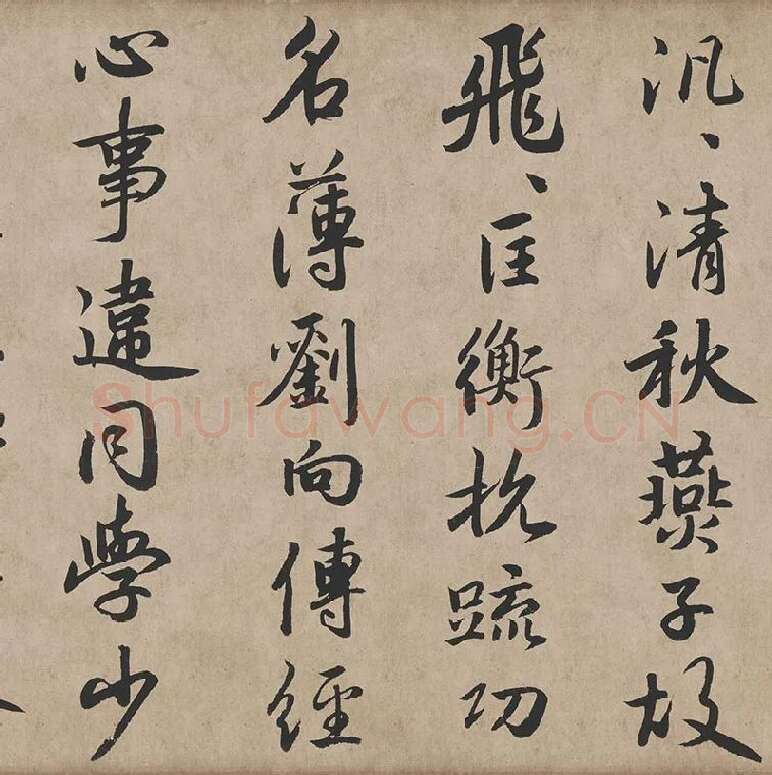 汎〻清秋燕子故
飛〻匡衡抗疏功
名薄劉向傳經
心事違同學少
Shufawang.CN